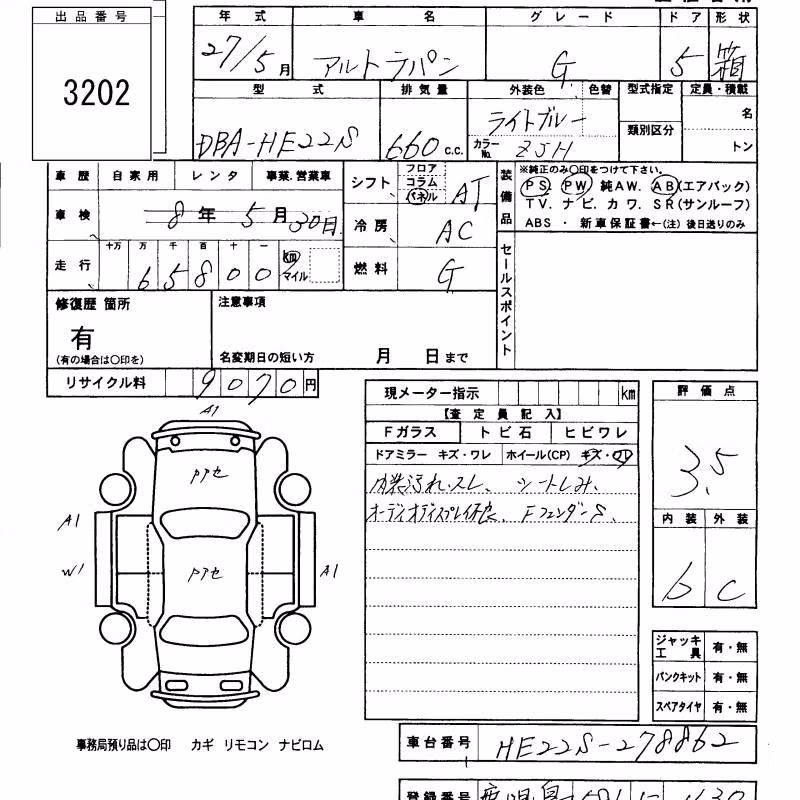 出品番号
3202
年式 車名 グレード ドア 形状
27/5月 アルトラパン G 5 箱
型式 排気量 外装色 色替 型式指定 定員・積載
DBA-HE22S 660 c.c. ライトブルー 名
カラーNo. ZJH 類別区分 トン
車歴 自家用 レンタ 事業.営業車
車検 8年5月30日
走行 十万 万 千 百 十 一
65800 km マイル
シフト フロア コラム パネル AT
冷房 AC
燃料 G
装備品 ※純正のみ○印をつけて下さい。
PS. PW. 純AW. AB(エアバック)
TV. ナビ. カワ. SR(サンルーフ)
ABS ・ 新車保証書←(注) 後日送りのみ
セールスポイント
修復歴 箇所
有
(有の場合は○印を)
注意事項
名変期日の短い方 月 日まで
リサイクル料 9070円
現メーター指示 km
【査定員記入】
Fガラス トビ石 ヒビワレ
ドアミラー キズ・ワレ ホイール(CP) キズ・ワレ
内装汚れ.スレ、シートしみ、
オーディオディスプレイ不良、FフェンダーS、
評価点
3.5
内装 外装
b C
A1
アアセ
A1
W1 アアセ A1
ジャッキ工具 有・無
パンクキット 有・無
スペアタイヤ 有・無
事務局預り品は○印 カギ リモコン ナビロム
車台番号 HE22S-278862
登録番号 鹿児島